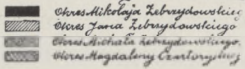 Okres Mikołaja Zebrzydowskiego
Okres Jana Zebrzydowskiego
Okres Michała Zebrzydowskiego.
Okres Magdaleny Czartoryskiej